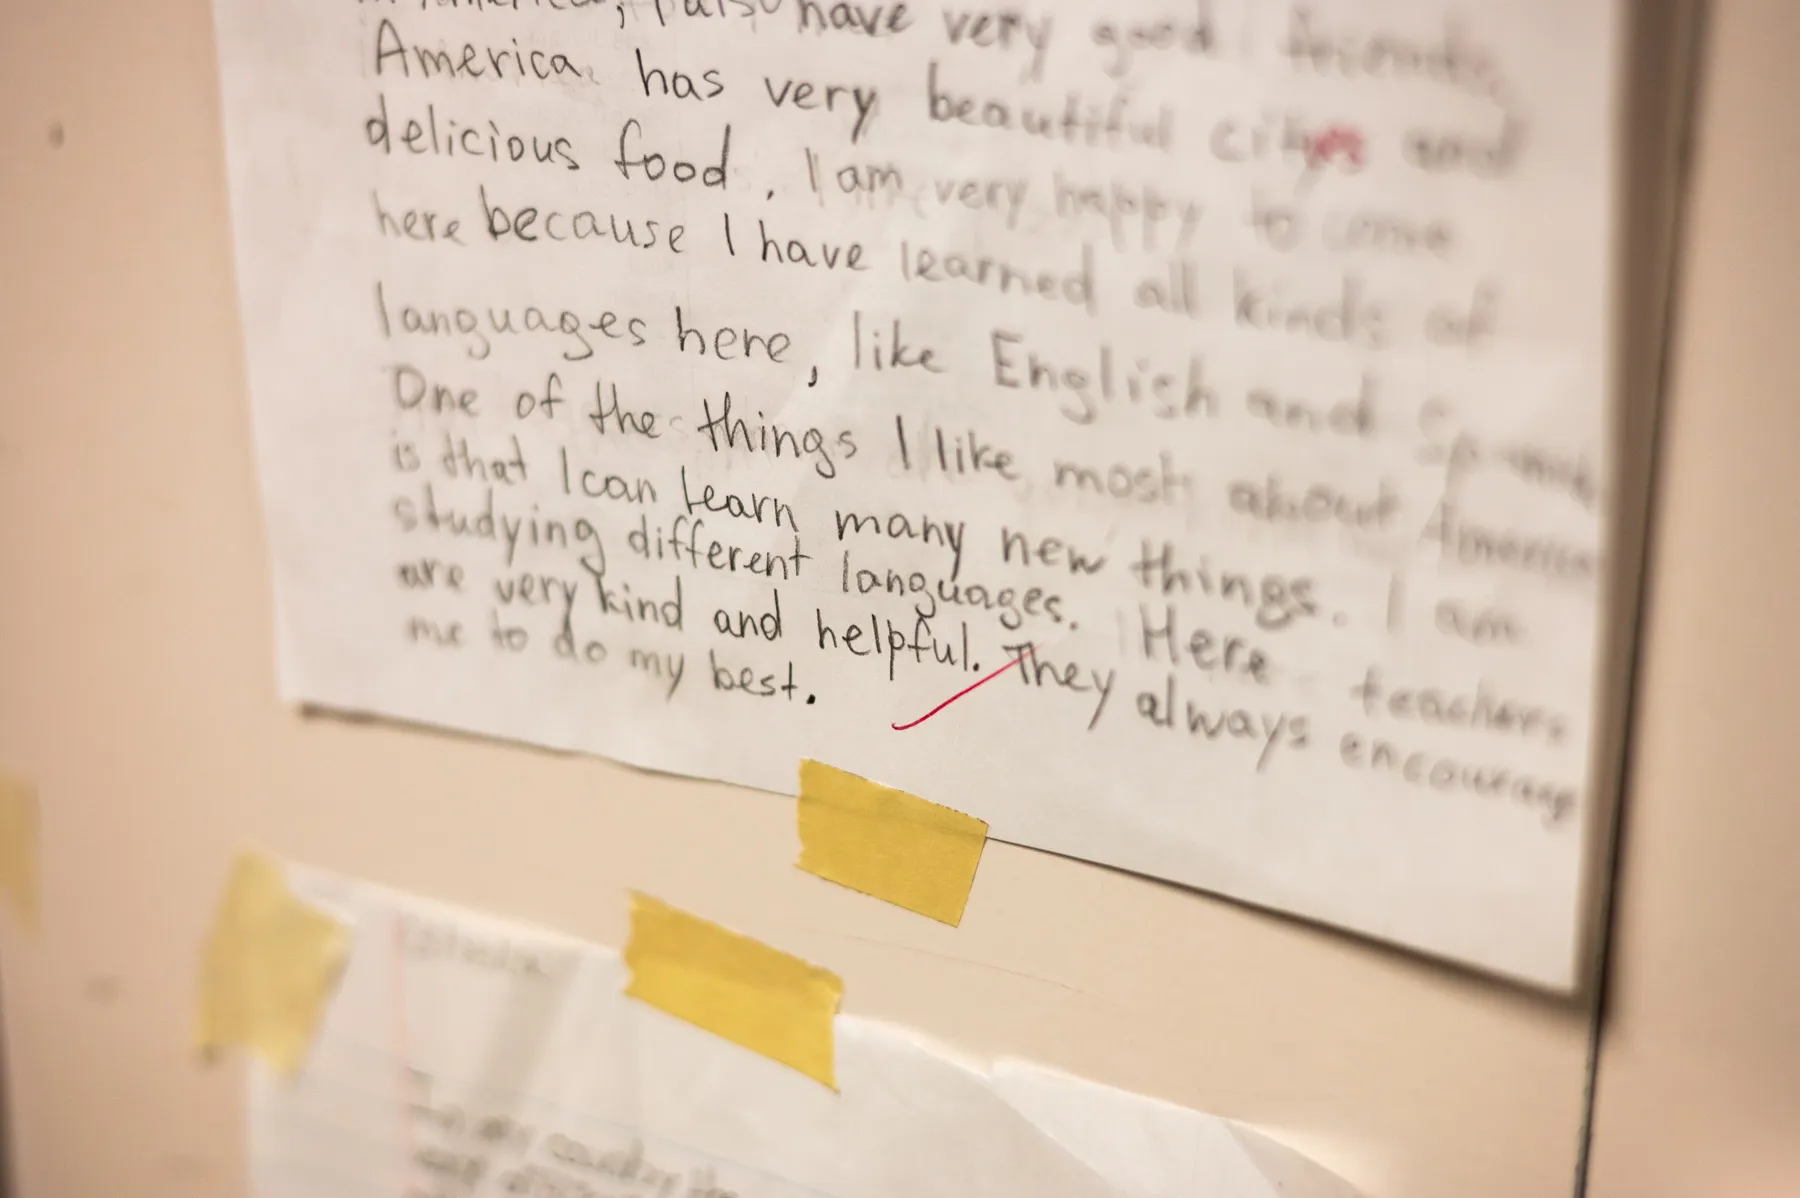 in America, I also have very good friends.
America has very beautiful cities and
delicious food. I am very happy to come
here because I have learned all kinds of
languages here, like English and Spanish
One of the things I like most about America
is that I can learn many new things. I am
studying different languages. Here teachers
are very kind and helpful. They always encourage
me to do my best.
In my country the